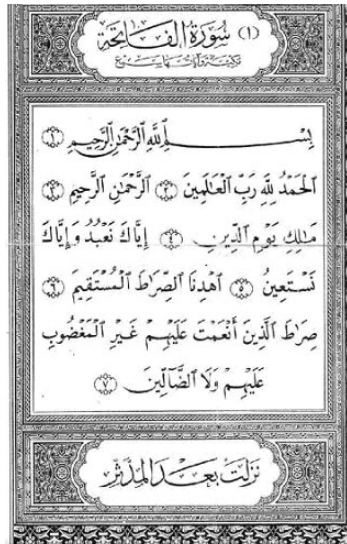 (١) سُورَةُ الفَاتِحَة
مكيّة وآياتها سبع
بِسْمِ اللَّهِ الرَّحْمَٰنِ الرَّحِيمِ ١
الْحَمْدُ لِلَّهِ رَبِّ الْعَالَمِينَ ٢ الرَّحْمَٰنِ الرَّحِيمِ ٣
مَالِكِ يَوْمِ الدِّينِ ٤ إِيَّاكَ نَعْبُدُ وَإِيَّاكَ
نَسْتَعِينُ ٥ اهْدِنَا الصِّرَاطَ الْمُسْتَقِيمَ ٦
صِرَاطَ الَّذِينَ أَنْعَمْتَ عَلَيْهِمْ غَيْرِ الْمَغْضُوبِ
عَلَيْهِمْ وَلَا الضَّالِّينَ ٧
نزلت بعد المدثر